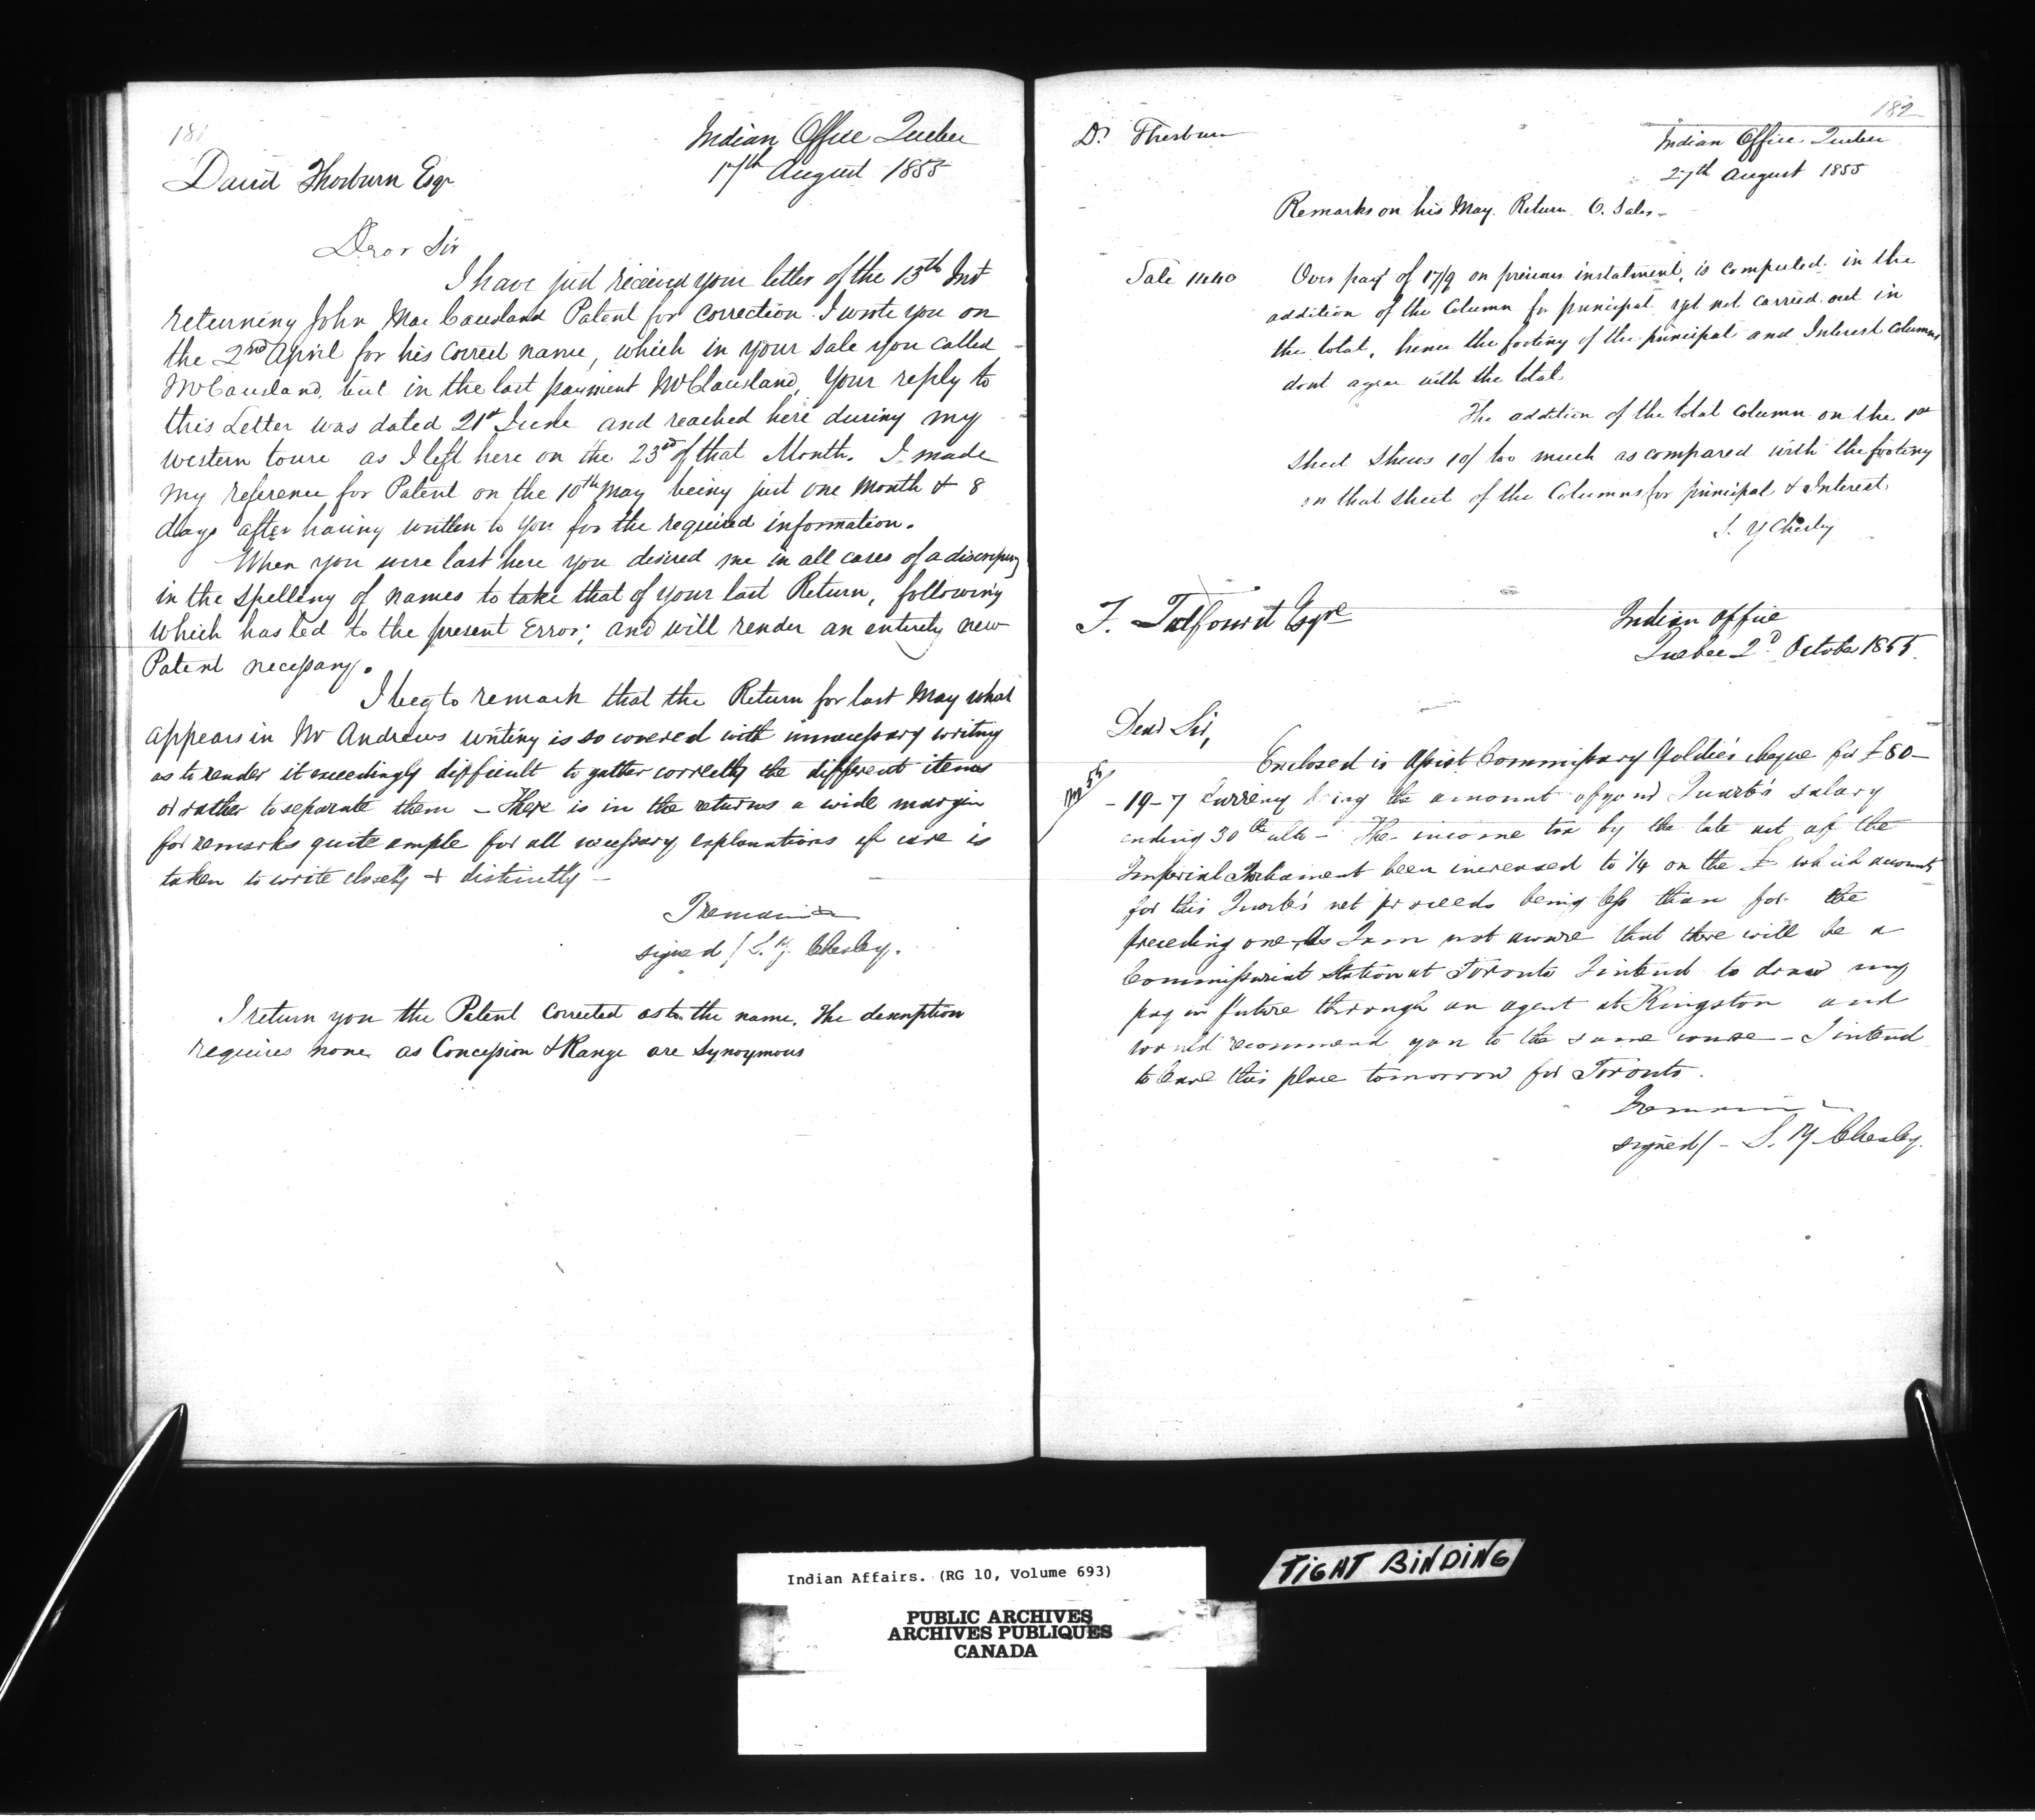 181
Indian Office Quebec
17th August 1855
David Thorburn Esqr
Dear Sir
I have just received your letter of the 13th Inst
returning John Mac Causland Patent for correction. I wrote you on
the 2nd April for his correct name, which in your sale you called
McCausland, but in the last payment McClausland, Your reply to
this Letter was dated 21st June and reached here during my
western toure as I left here on the 23rd of that Month. I made
my reference for Patent on the 10th May being just one month & 8
days after having written to you for the required information.
When you were last here you desired me in all cases of a discrepancy
in the spelling of names to take that of your last Return, following
which has led to the present Error; and will render an entirely new
Patent necessary.
I beg to remark that the Return for last May what
appears in Mr Andrews writing is so covered with unnecessary writing
as to render it exceedingly difficult to gather correctly the different items
or rather to separate them - There is in the returns a wide margin
for remarks quite ample for all necessary explanations if care is
taken to write closely & distinctly -
I remain
signed / S. Y. Chesley.
I return you the Patent corrected as to the name. The description
requires none as Concession & Range are Synoymous
182
D. Thorburn
Indian Office Quebec
27th August 1855
Remarks on his May Return O. Sales -
Sale 1440
Over payt of 17/9 on previous instalment, is computed in the
addition of the Column for principal yet not carried out in
the total, hence the footing of the principal and Interest columns
dont agree with the total.
The addition of the total column on the 1st
sheet shews 10/ too much as compared with the footing
on that sheet of the Columns for principal & Interest.
S. Y Chesley
F. Talfourd Esqre
Indian Office
Quebec 2d October 1855.
Dear Sir,
Enclosed is Assist Commissary Goldie's cheque for £80 -
- 19 - 7 Currency being the amount of your Quarter's salary
ending 30th ulto - The income tax by the late act of the
Imperial Parliament been increased to 1/4 on the £ which accounts
for this Quarter's net proceeds being less than for the
preceding one. As I am not aware that there will be a
Commissariat Station at Toronto I intend to draw my
pay in future through an agent at Kingston and
would recommend you to the same course - I intend
to leave this place tomorrow for Toronto.
I remain
signed / - S. Y Chesley.
Indian Affairs. (RG 10, Volume 693)
PUBLIC ARCHIVES
ARCHIVES PUBLIQUES
CANADA
TIGHT BINDING